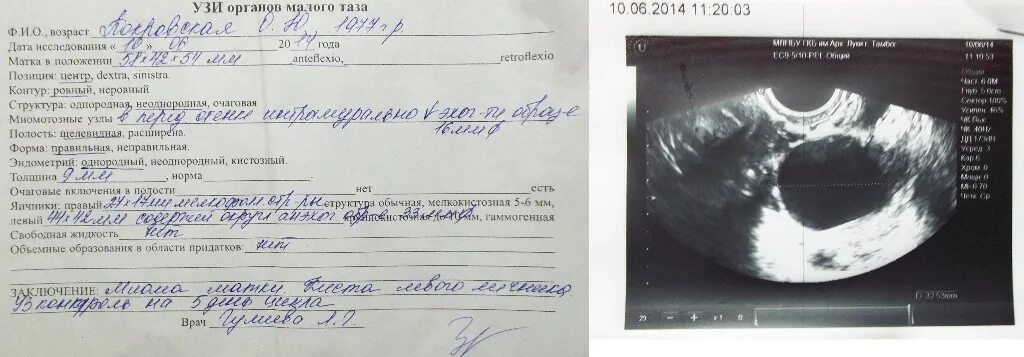 УЗИ органов малого таза
Ф.И.О., возраст Покровская О. Ю 1977 г.р.
Дата исследования «10» 06 2014 года
Матка в положении 58×42×54 мм, anteflexio, retroflexio
Позиция: центр, dextra, sinistra.
Контур: ровный, неровный
Структура: однородная, неоднородная, очаговая
Миомотозные узлы в перед стенке интрамурально образе
16мм
Полость: щелевидная, расширена.
Форма: правильная, неправильная.
Эндометрий: однородный, неоднородный, кистозный.
Толщина 9 мм, норма
Очаговые включения в полости нет есть
Яичники: правый 27×17мм структура обычная, мелкокистозная 5-6 мм,
левый 44×42мм содержит округл анэхог 33 мм, гаммогенная
Свободная жидкость нет
Объемные образования в области придатков: нет
ЗАКЛЮЧЕНИЕ: Миома матки. Киста левого яичника.
УЗ контроль на 5 день цикла
Врач Гулиева Л.Г.
10.06.2014 11:20:03
МЛПБУ ГКБ им Арх Луки г. Тамбо
10/06/14
EC9-5/10 PEL Общий
11:10:53
Общий
Част 6.0M
Глуб 5.6cm
Сектор 100%
Усилен 46%
ЧК Выс
ЧК 40Hz
ДД 173dB
Усред 3
Кар 0
Хром 0
Мощн 0
МI 0.70
Четк Ср.
D: 32.53mm
29 − + x1 6